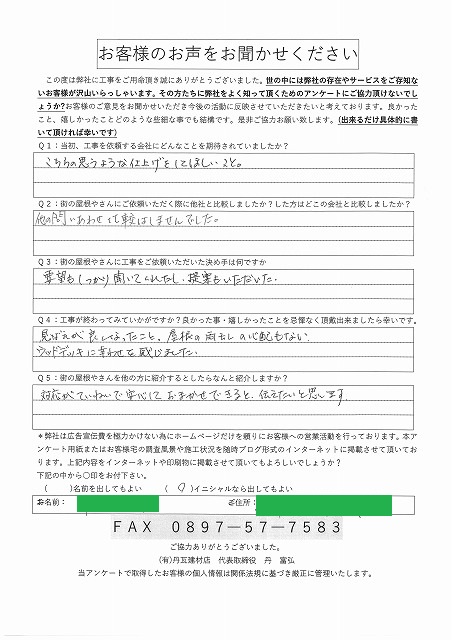 お客様のお声をお聞かせください
この度は弊社に工事をご用命頂き誠にありがとうございました。世の中には弊社の存在やサービスをご存知な
いお客様が沢山いらっしゃいます。その方たちに弊社をよく知って頂くためのアンケートにご協力頂けないでし
ょうか?お客様のご意見をお聞かせいただき今後の活動に反映させていただきたいと考えております。良かった
こと、嬉しかったことどのような些細な事でも結構です。是非ご協力お願い致します。(出来るだけ具体的に書
いて頂ければ幸いです)
Q１：当初、工事を依頼する会社にどんなことを期待されていましたか？
こちらの思うような仕上げをしてほしいこと。
Q２：街の屋根やさんにご依頼いただく際に他社と比較しましたか？した方はどこの会社と比較しましたか？
他の問いあわせ比較はしませんでした。
Q３：街の屋根やさんに工事をご依頼いただいた決め手は何ですか
要望もしっかり聞いてくれたし、提案もいただいた。
Q４：工事が終わってみていかがですか？良かった事・嬉しかったことを忌憚なく頂戴出来ましたら幸いです。
見ばえが良くなったこと、屋根の雨もしの心配もない。
ウッドデッキに幸わせを感じました。
Q５：街の屋根やさんを他の方に紹介するとしたらなんと紹介しますか？
対応がていねいで安心しておまかせできると、伝えたいと思います
＊弊社は広告宣伝費を極力かけない為にホームページだけを頼りにお客様への営業活動を行っております。本ア
ンケート用紙またはお客様宅の調査風景や施工状況を随時ブログ形式のインターネットに掲載させて頂いてお
ります。上記内容をインターネットや印刷物に掲載させて頂いてもよろしいでしょうか？
下記の中から〇印をお付下さい。
( )名前を出してもよい ( 〇 )イニシャルなら出してもよい
お名前： ご住所：
FAX 0897-57-7583
ご協力ありがとうございました。
(有)丹瓦建材店 代表取締役 丹 富弘
当アンケートで取得したお客様の個人情報は関係法規に基づき厳正に管理いたします。